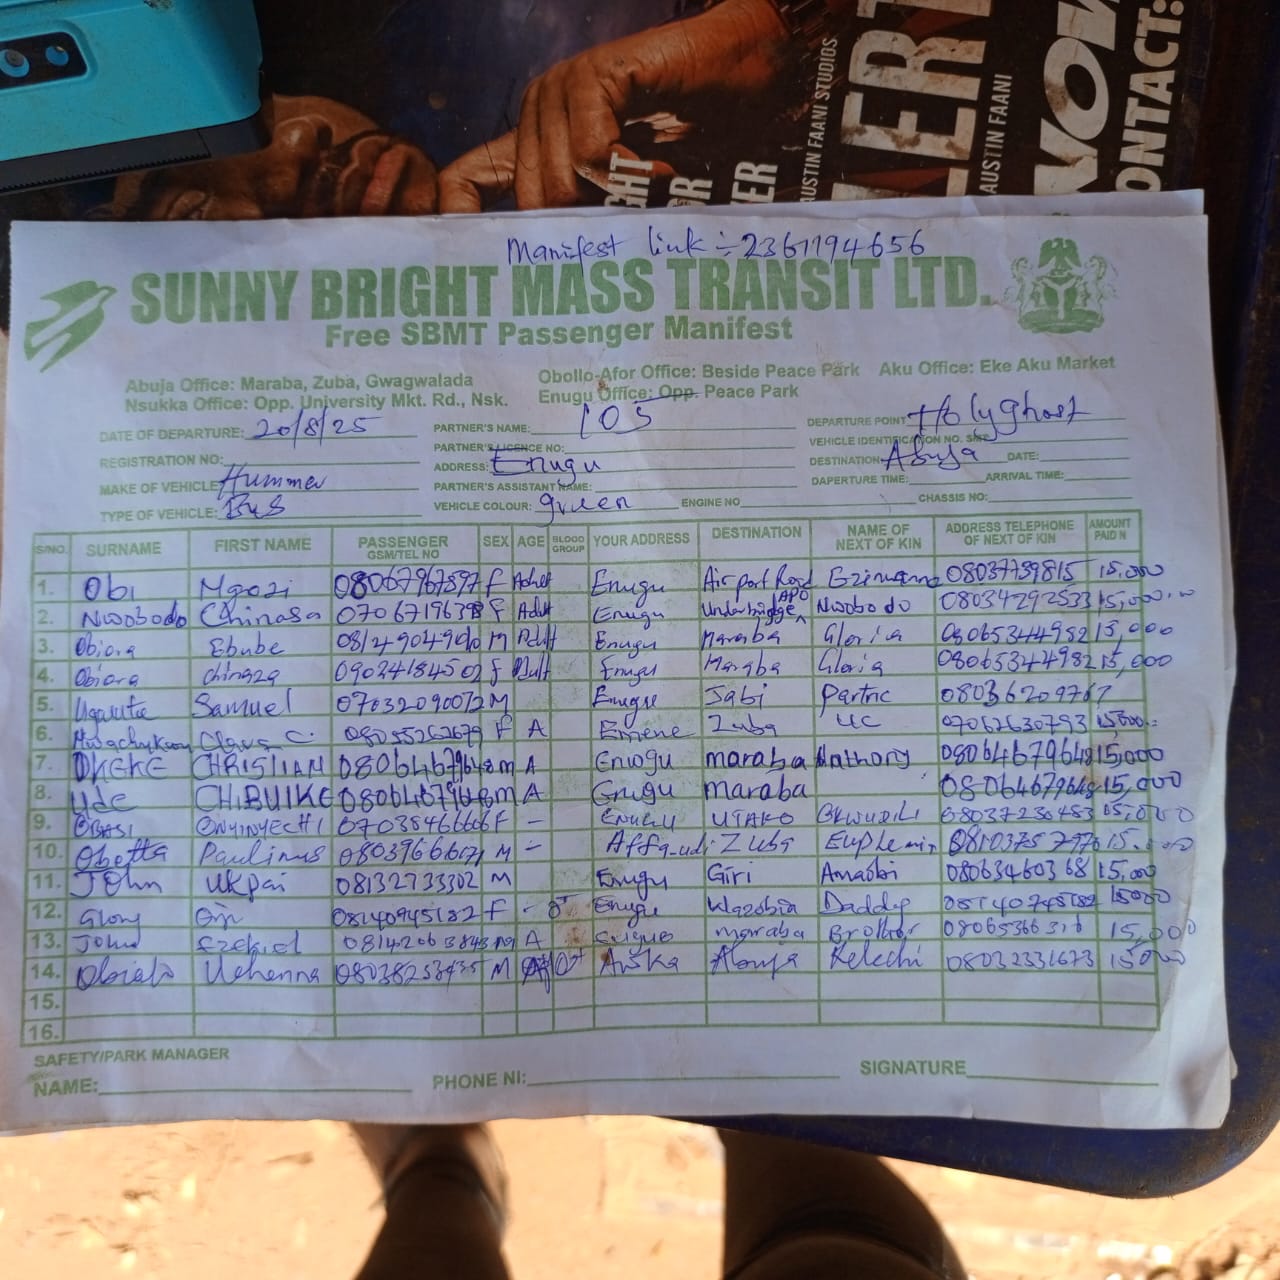 ERT
AUSTIN FAANI STUDIOS
AUSTIN FAANI
CONTACT:
Manifest link :- 2361194656
SUNNY BRIGHT MASS TRANSIT LTD.
Free SBMT Passenger Manifest
Abuja Office: Maraba, Zuba, Gwagwalada
Obollo-Afor Office: Beside Peace Park Aku Office: Eke Aku Market
Nsukka Office: Opp. University Mkt. Rd., Nsk.
Enugu Office: Opp. Peace Park
DATE OF DEPARTURE: 20/8/25 PARTNER'S NAME: 105 DEPARTURE POINT Holyghost
PARTNER'S LICENCE NO: VEHICLE IDENTIFICATION NO.
REGISTRATION NO: ADDRESS: Enugu DESTINATION Abuja DATE:
MAKE OF VEHICLE Hummer PARTNER'S ASSISTANT NAME: DAPERTURE TIME: ARRIVAL TIME:
TYPE OF VEHICLE: Bus VEHICLE COLOUR: green ENGINE NO CHASSIS NO:
S/NO. SURNAME FIRST NAME PASSENGER GSM/TEL NO SEX AGE BLOOD GROUP YOUR ADDRESS DESTINATION NAME OF NEXT OF KIN ADDRESS TELEPHONE OF NEXT OF KIN AMOUNT PAID N
1. Obi Ngozi 08067967897 F Adult Enugu Airport Road 08037739815 15,000
2. Nwobodo Chinasa F Adult Enugu Underbridge APO Nwobodo 08034292533 15,000
3. Obiora Ebube 08124904900 M Adult Enugu Maraba Gloria 08065344982 15,000
4. Obiora chinaza 09024184502 F Adult Enugu Maraba Gloria 08065344982 15,000
5. Samuel 07032090072 M Enugu Jabi 08036209767
6. F A Emene Zuba UC 07062630793 15,000
7. OKEKE CHRISTIAN 08064679648 M A Enugu maraba Anthony 08064679648 15,000
8. Ude CHIBUIKE 08064679648 M A Enugu maraba 08064679648 15,000
9. OBASI ONYINYECHI 07038466606 F - Enugu UTAKO 08037236453 15,000
10. Obetta Paulinus 08039666171 M - Zuba 15,000
11. John Ukpai 08132733302 M Enugu Giri Amaobi 08063460368 15,000
12. Glory Oji 08140945182 F - Enugu Wazobia Daddy 15000
13. John Ezekiel M A Enugu maraba Brother 08065366316 15,000
14. Uchenna 08038253435 M O+ Abuja Kelechi 08032331673 15000
15.
16.
SAFETY/PARK MANAGER
NAME: PHONE NI: SIGNATURE